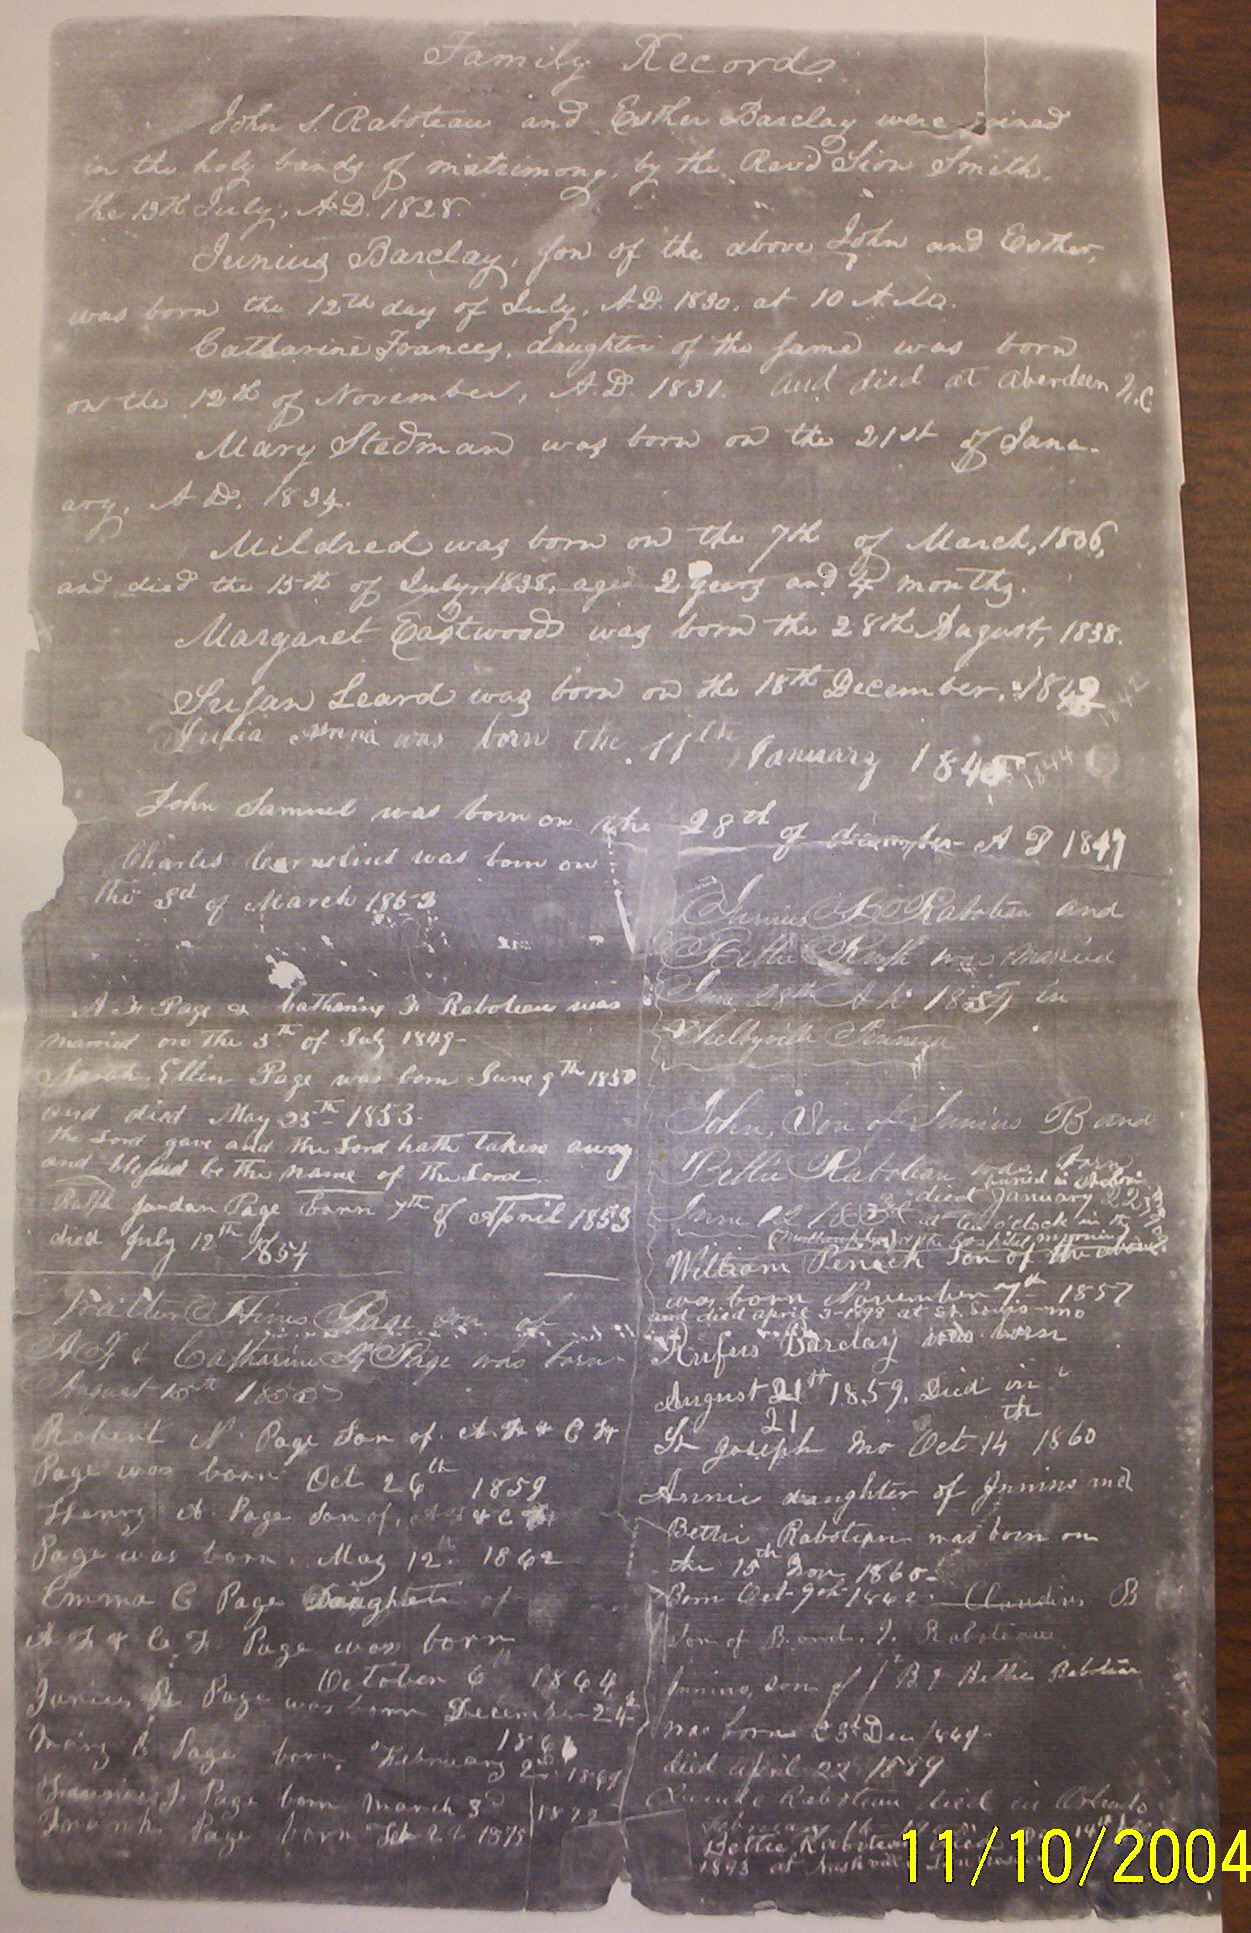 Family Record.
John S. Raboteau and Esther Barclay were joined
in the holy bands of matrimony, by the Revd Sion Smith,
the 13th July, A.D. 1828.
Junius Barclay, son of the above John and Esther,
was born the 12th day of July, A.D. 1830, at 10 A.M.
Catharine Frances, daughter of the same was born
on the 12th of November, A.D. 1831. and died at Aberdeen N.C.
Mary Stedman was born on the 21st of Janu-
ary, A.D. 1834.
Mildred was born on the 7th of March, 1836,
and died the 15th of July, 1838, aged 2 years and 4 months.
Margaret Eastwood was born the 28th August, 1838.
Susan Leard was born on the 18th December, 1842 1842
Julia Anna was born the 11th January 1845 1844
John Samuel was born on the 28th of december A D 1847
Charles Cornelius was born on
the 3d of March 1852
A F Page & Catharine F Raboteau was
married on the 5th of July 1849-
Sarah Ellen Page was born June 9th 1850
and died May 25th 1853-
the Lord gave and the Lord hath taken away
and blessed be the name of the Lord.
Ralph Jordan Page born 7th of April 1853
died July 12th 1854
Walter Hines Page son of
A F & Catharine F Page was born
August 15th 1855
Robert N. Page Son of A. F & C F
Page was born Oct 26th 1859
Henry A. Page Son of, A F & C F
Page was born, May 12th 1862
Emma C Page Daughter of
A F & C. F. Page was born
October 6th 1864
Junius R. Page was born December 24th
186
Mary E Page born, February 2nd 1869
Frances J. Page born March 3d 1872
Frank Page born Feb 22 1875
Junius B Raboteau and
Bettie was married
June 28th A.D. 1854 in
Shelbyville
John, Son of Junius B and
Bettie Raboteau was born
died January 22
June 12 at ten o'clock in the
morning
William Penick Son of the above
was born November 7th 1857
and died April 3-1898 at St Louis Mo
Rufus Barclay was born
August 21st 1859, Died in
21
St Joseph Mo Oct 14th 1860
Annie daughter of Junius and
Bettie Raboteau was born on
the 15th Nov 1860-
Born Oct 9th 1862 Claudius B
Son of B. and J. Raboteau
Junius, son of J B & Bettie Raboteau
was born 23d Dec 1869-
died April 22 1889
Raboteau died in Orlando
Bettie Raboteau died 14th
1893 at Nashville Tennessee
11/10/2004